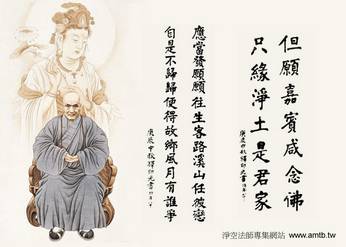 但願嘉賓咸念佛
只緣淨土是君家
應當發願願往生客路溪山任彼戀
自是不歸歸便得故鄉風月有誰爭
庚辰中秋釋印光書
淨空法師專集網站 www.amtb.tw